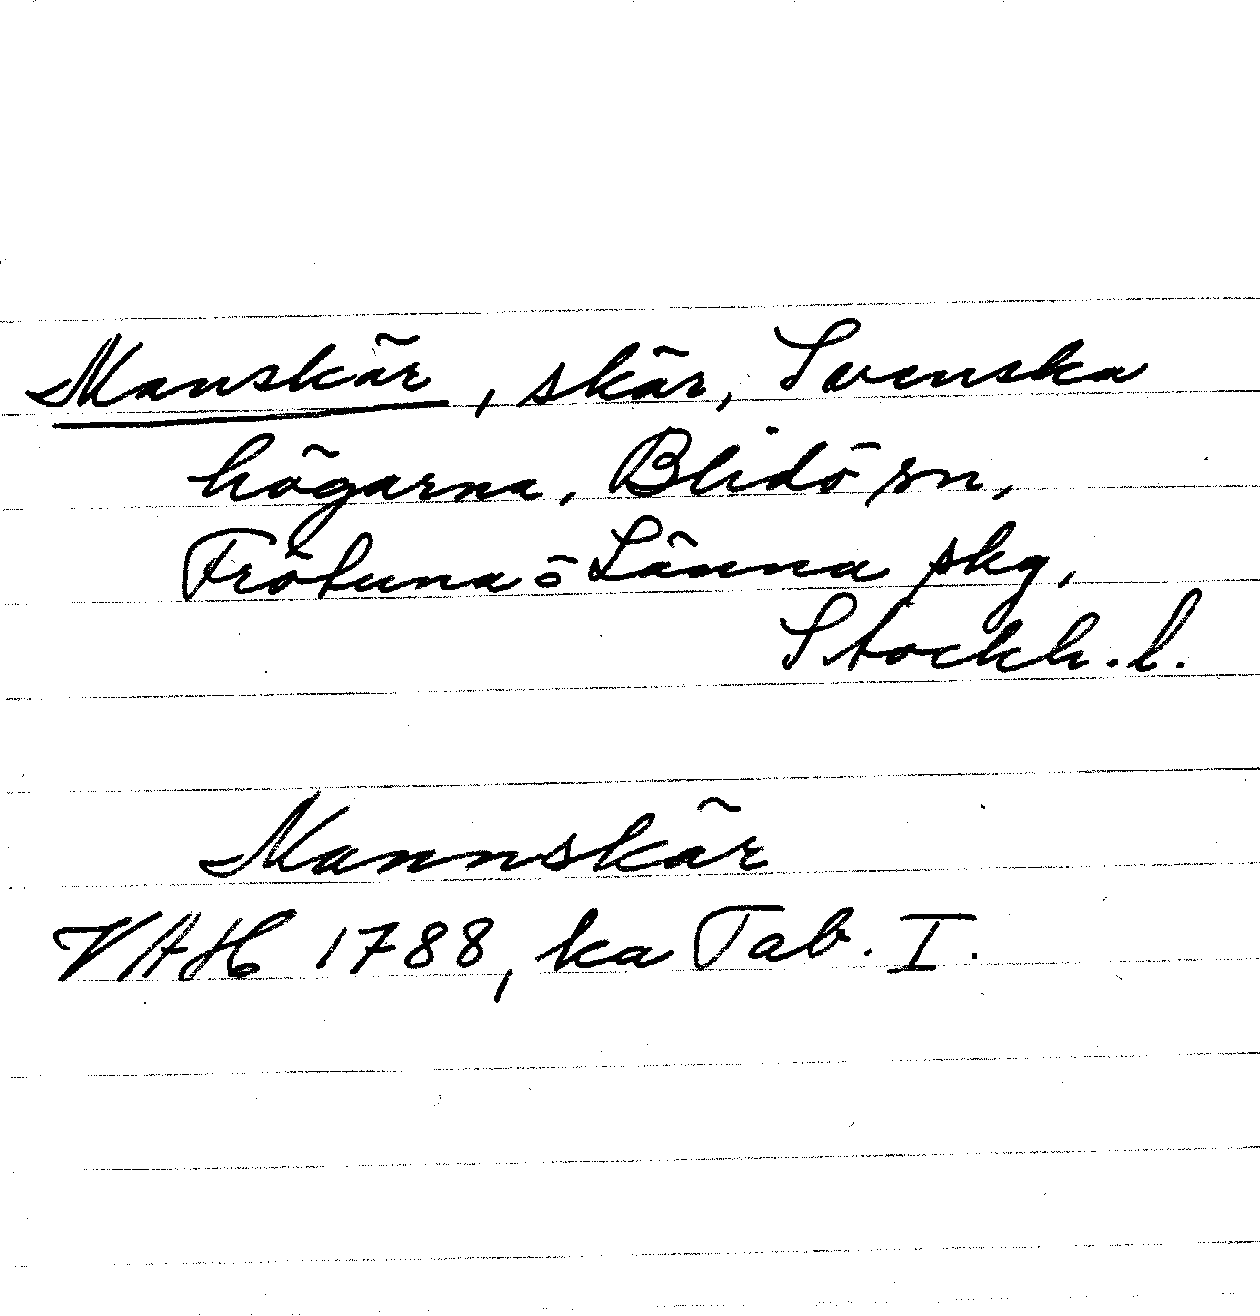 Manskär, skär, Svenska
högarna, Blidö sn,
Frötuna ō Länna skg,
Stockh. l.
Mannskär
VAH 1788, ka Tab. I.